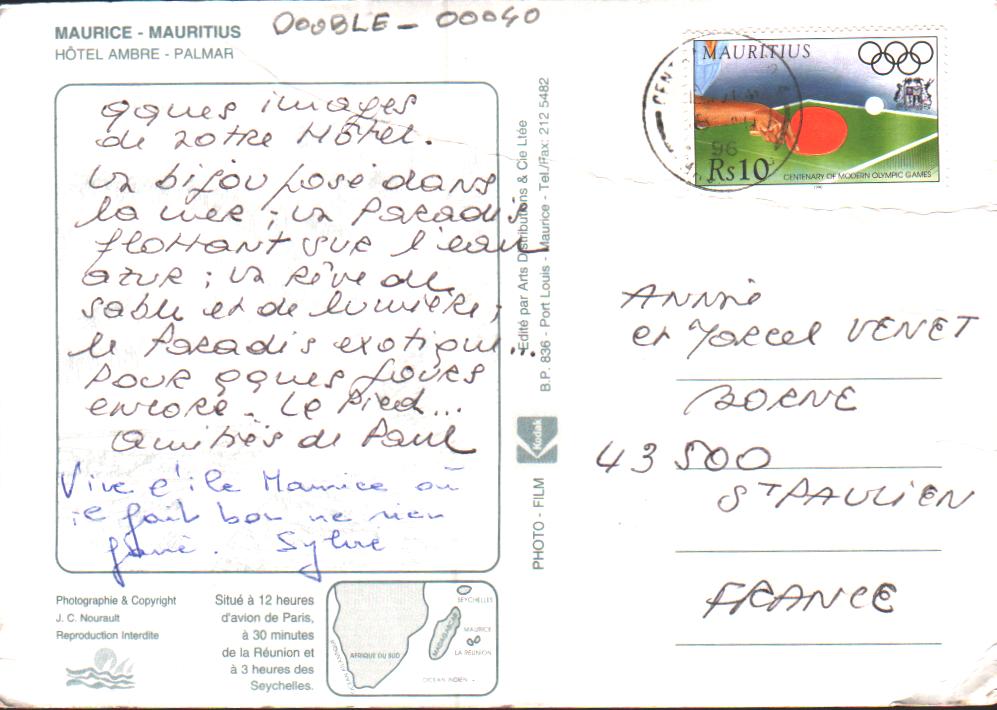 MAURICE - MAURITIUS
HÔTEL AMBRE - PALMAR
DOUBLE - 00040
qques images
de notre Hôtel.
un bijou posé dans
la mer ; un Paradis
flottant sur l'eau
azur ; un rêve de
sable et de lumière ;
le Paradis exotique...
pour qques jours
encore. Le Pied...
Amitiés de Paul
Vive l'île Maurice où
il fait bon ne rien
faire. Sylvie
Photographie & Copyright
J. C. Nourault
Reproduction Interdite
Situé à 12 heures
d'avion de Paris,
à 30 minutes
de la Réunion et
à 3 heures des
Seychelles.
SEYCHELLES
MADAGASCAR
MAURICE
LA RÉUNION
AFRIQUE DU SUD
OCEAN INDIEN
Edité par Arts Distributions & Cie Ltée
B.P. 836 - Port Louis - Maurice - Tel./Fax: 212 5482
Kodak
PHOTO - FILM
MAURITIUS
Rs10
CENTENARY OF MODERN OLYMPIC GAMES
96
Annie
et Marcel VENET
BORNE
43500
ST PAULIEN
FRANCE